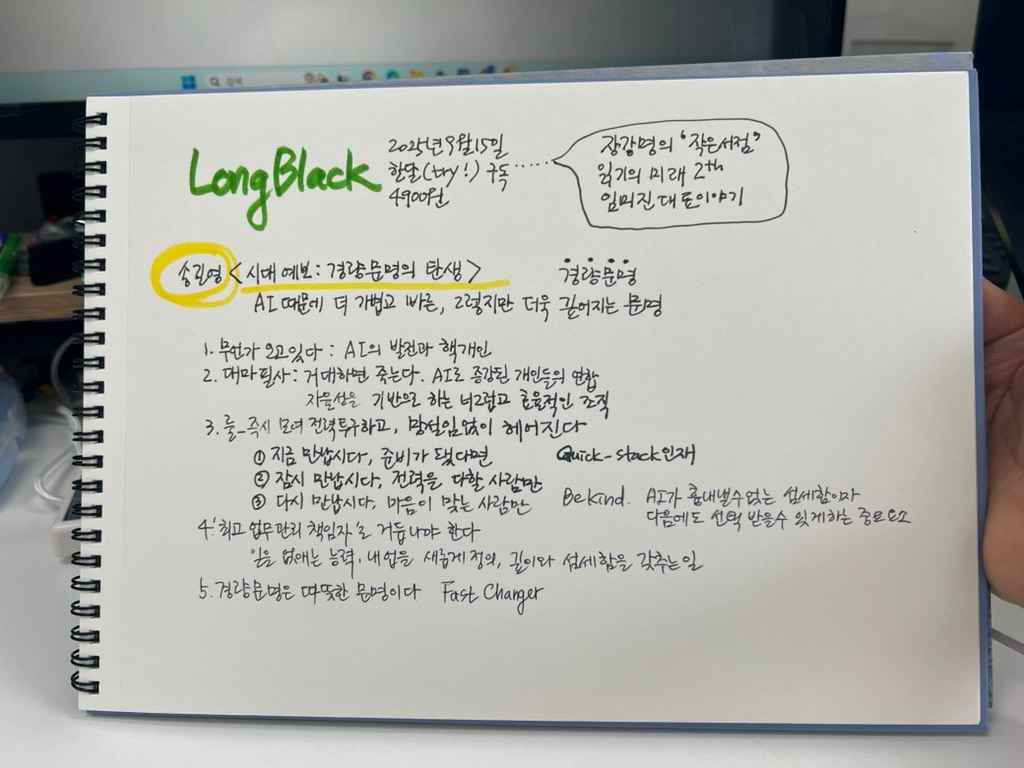 검색
LongBlack
2025년 9월 15일
한달(try!) 구독 ......
4900원
장강명의 "작은서점"
읽기의 미래 2th
임미진 대표이야기
송길영 <시대예보: 경량문명의 탄생>
경량문명
AI 때문에 더 가볍고 빠른, 그렇지만 더욱 깊어지는 문명
1. 무언가 오고있다 : AI의 발전과 핵개인
2. 대마필사 : 거대하면 죽는다. AI로 증강된 개인들의 연합
자율성을 기반으로 하는 너그럽고 효율적인 조직
3. 룰_즉시 모여 전력투구하고, 망설임없이 헤어진다
① 지금 만납시다, 준비가 됐다면 Quick-stack인재
② 잠시 만납시다, 전력을 다할 사람만
③ 다시 만납시다, 마음이 맞는 사람만 Be kind. AI가 흉내낼수 없는 섬세함이자
다음에도 선택 받을수 있게하는 중요요소
4. '최고 업무관리 책임자'로 거듭나야 한다
일을 없애는 능력, 내 업을 새롭게 정의, 깊이와 섬세함을 갖추는일
5. 경량문명은 따뜻한 문명이다 Fast Changer